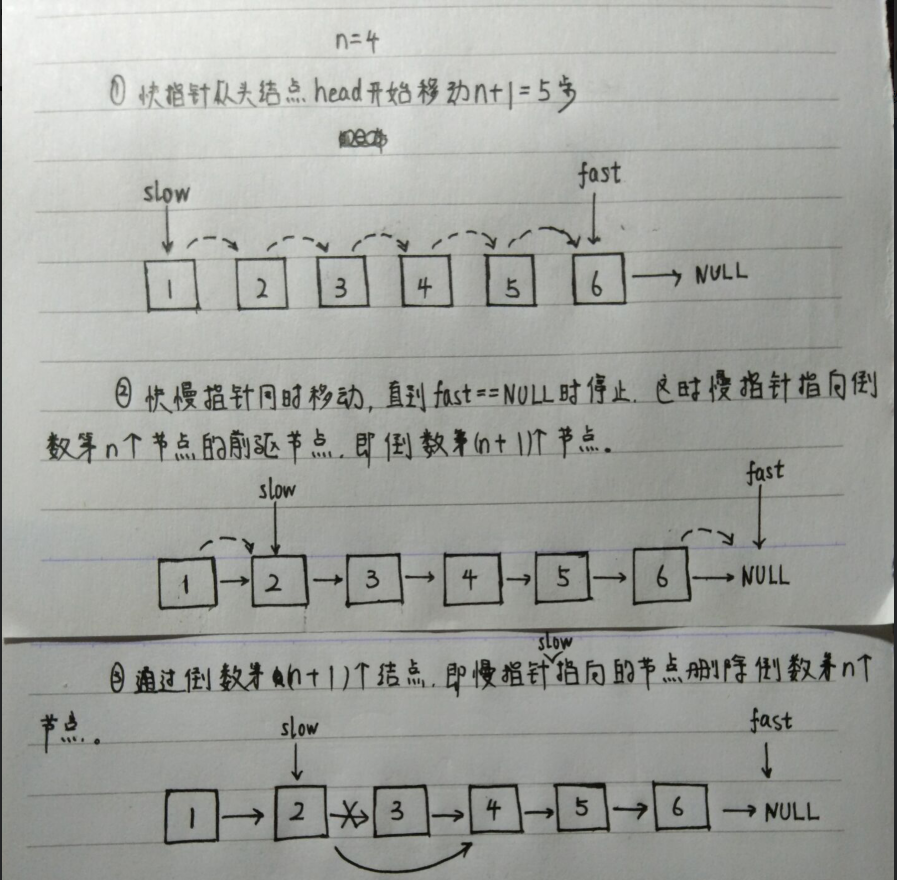 n=4
① 快指针从头结点head开始移动n+1=5步
slow fast
1 2 3 4 5 6 NULL
② 快慢指针同时移动,直到fast==NULL时停止.这时慢指针指向倒
数第n个节点的前驱节点.即倒数第(n+1)个节点。
slow fast
1 2 3 4 5 6 NULL
slow
③ 通过倒数第(n+1)个结点.即慢指针指向的节点删除倒数第n个
节点.。
slow fast
1 2 3 4 5 6 NULL